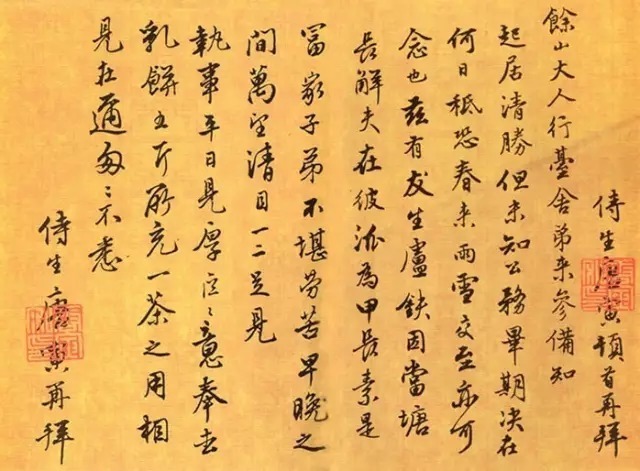 侍生唐寅頓首再拜
餘山大人行臺舍弟來參備知
起居清勝但未知公務畢期決在
何日秪恐春來雨雪交至亦可
念也茲有友生盧鈇因當塘
長解夫在彼派為甲長素是
富家子弟不堪勞苦早晚之
間萬望清目一二足見
執事平日見厚區〻意奉去
乳餅五斤聊充一茶之用相
見在邇匆〻不悉
侍生唐寅再拜